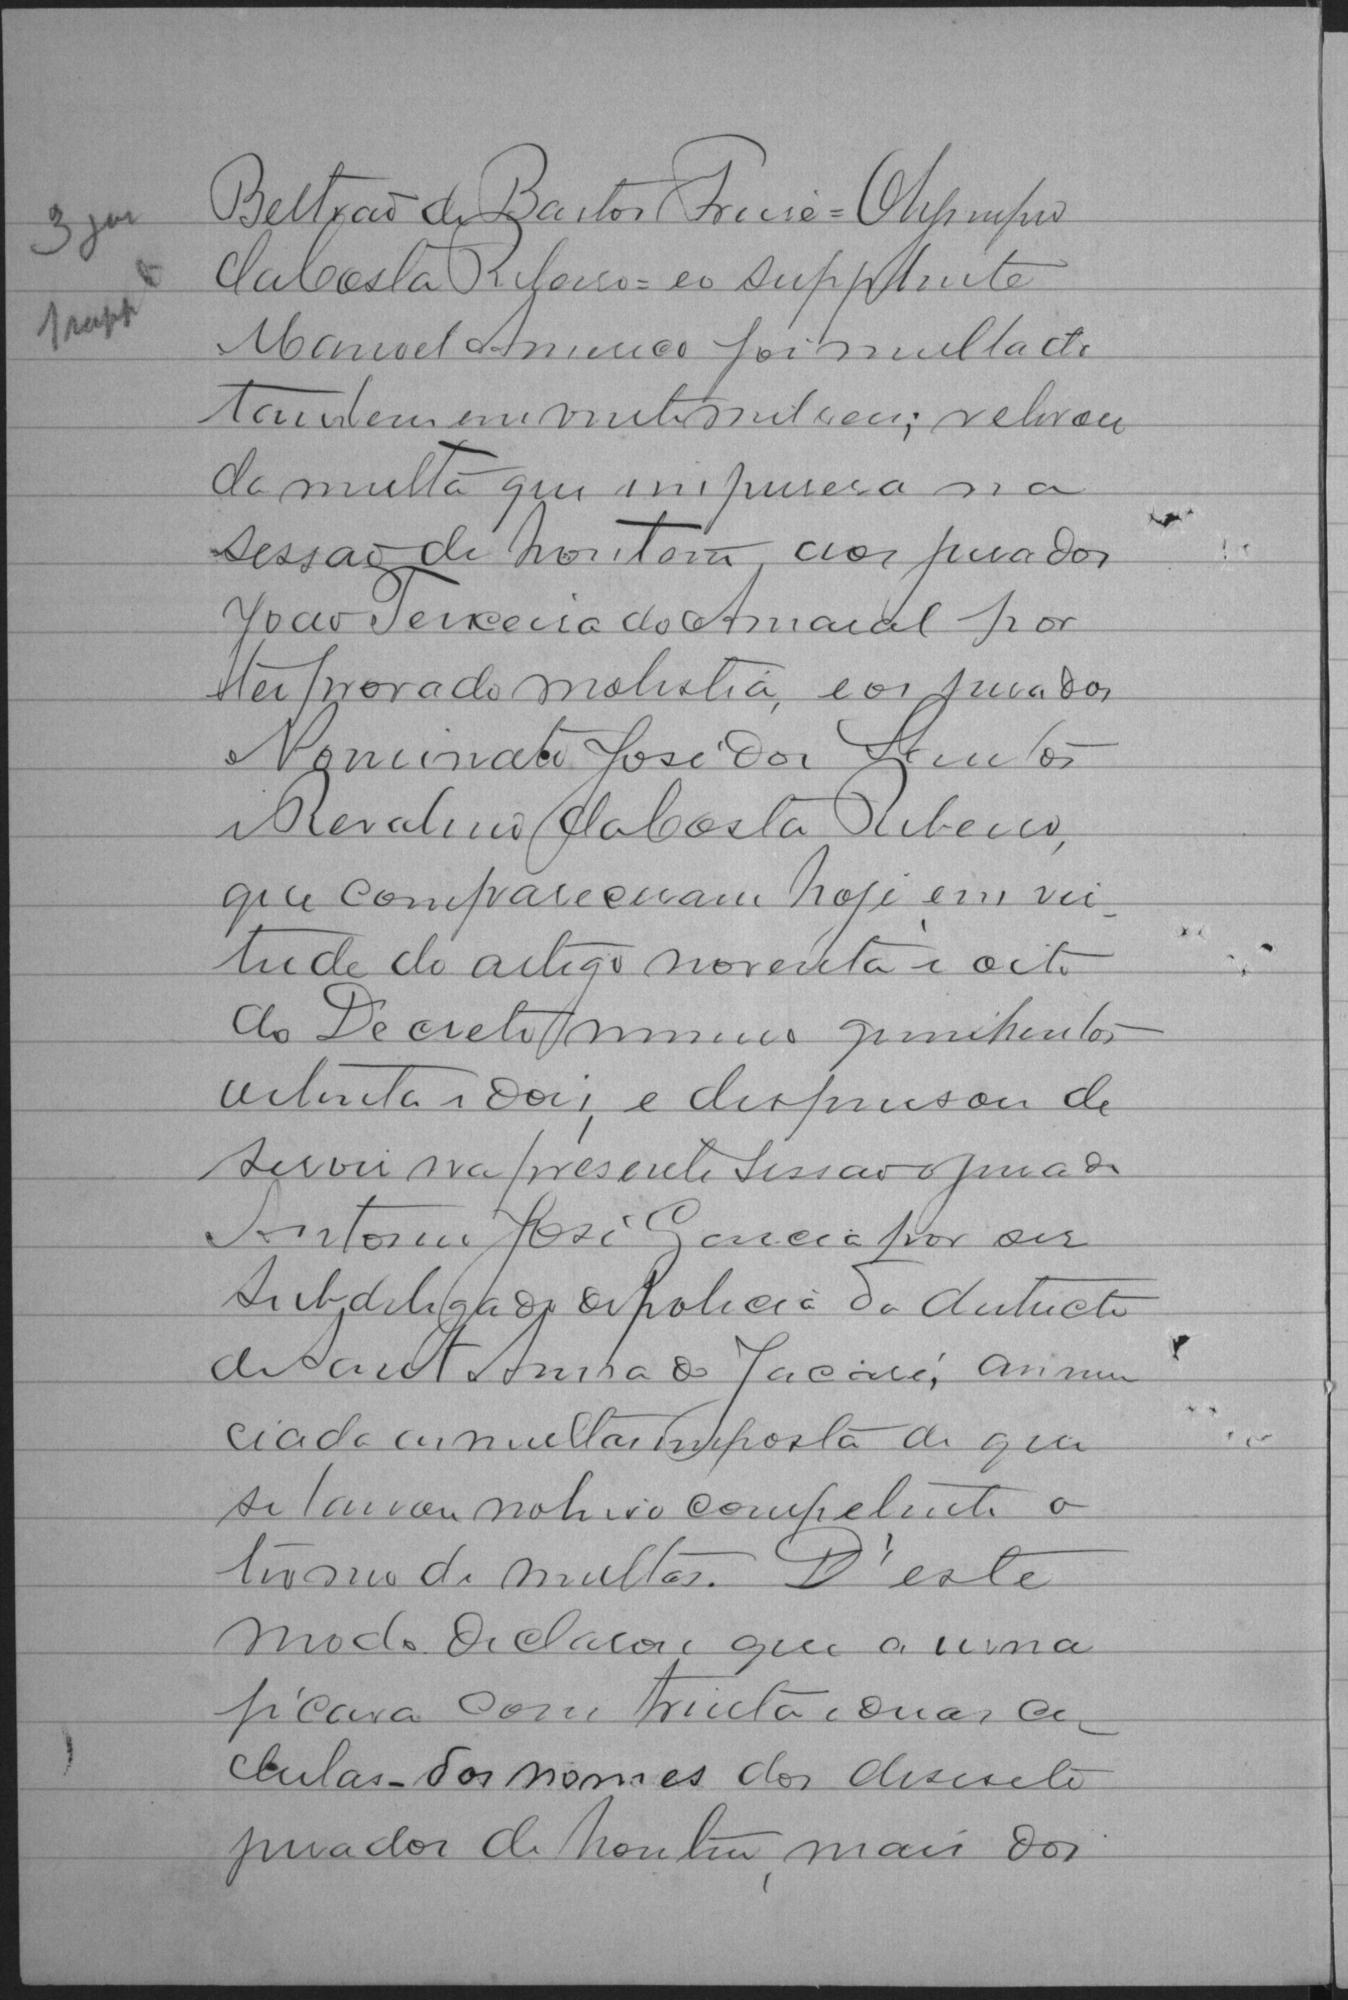 3 jur
1 supp
Beltrão de Bastos Freire = Olympio
da Costa Ribeiro = e o supplente
Manoel Americo foi multado
tambem em vinte mil reis; relevou
da multa que impusera na
sessão de hontem, aos jurados
João Teixeira do Amaral por
ter provado molestia, e os jurados
Nominato José dos Santos
e Revalino da Costa Ribeiro,
que compareceram hoje em vir-
tude do artigo noventa e oito
do Decreto numero quinhentos
oitenta e dois, e dispensou de
servir na presente sessão o jurado
Antonio José Garcia por ser
subdelegado de policia do districto
de Sant Anna do Jacaré, annun
ciada as multas imposta de que
se lavrou no livro competente o
termo de multas. D'este
modo declarou que a urna
ficava com trinta e duas ce-
dulas - dos nomes dos desesete
jurados de hontem, mais dos